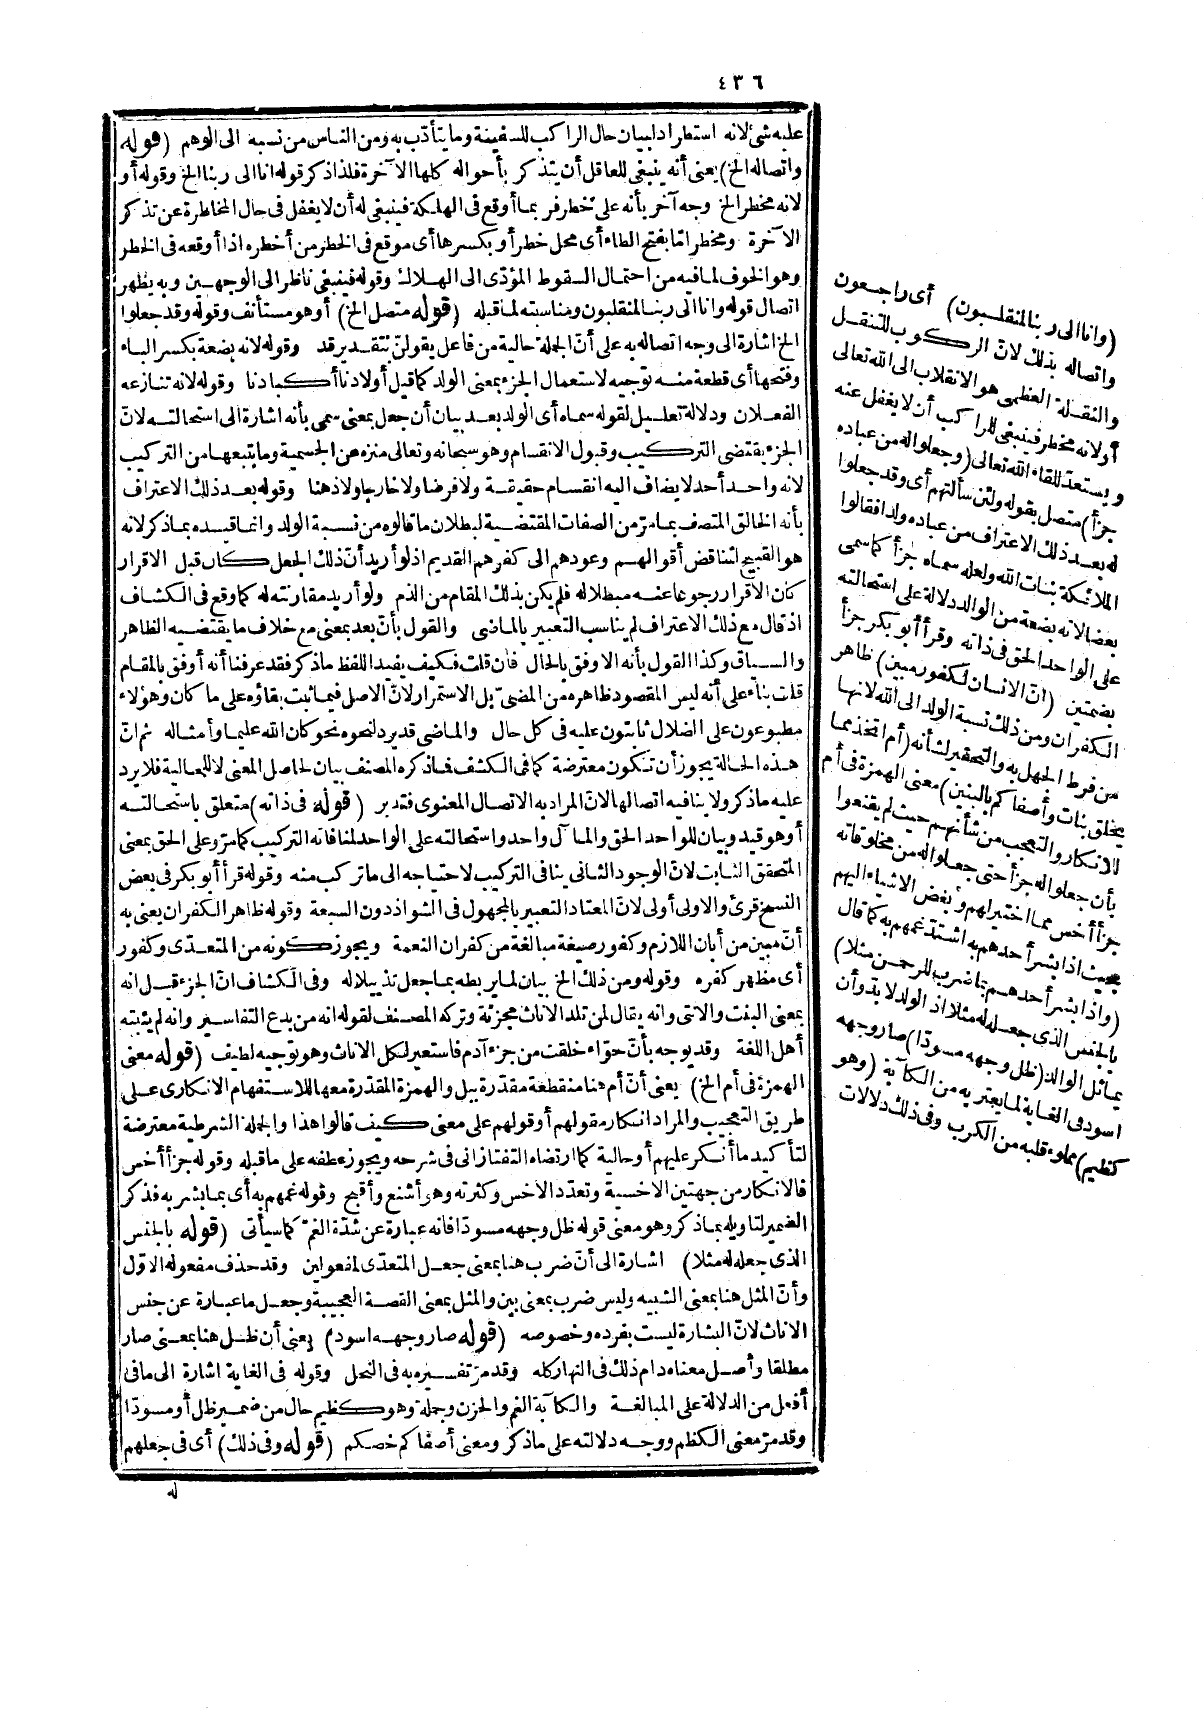 ٤٣٦
عليه شئ لانه استطراد لبيان حال الراكب للسفينة وما يتأدّب به ومن الناس من نسبه الى الوهم (قوله
واتصاله الخ) يعنى أنه ينبغى للعاقل أن يتذكر بأحواله كلها الآخرة فلذا ذكر قوله انا الى ربنا الخ وقوله أو
لانه مخطر الخ وجه آخر بأنه على خطر فربما أوقع فى الهلكة فينبغى له أن لا يغفل فى حال المخاطرة عن تذكر
الآخرة ومخطر امّا بفتح الطاء أى محل خطر أو بكسرها أى موقع فى الخطر من أخطره اذا أوقعه فى الخطر
وهو الخوف لما فيه من احتمال السقوط المؤدّى الى الهلاك وقوله فينبغى ناظر الى الوجهين وبه يظهر
اتصال قوله وانا الى ربنا لمنقلبون ومناسبته لما قبله (قوله متصل الخ) أو هو مستأنف وقوله وقد جعلوا
الخ اشارة الى وجه اتصاله به على أنّ الجملة حالية من فاعل يقولنّ بتقدير قد وقوله لانه بضعة بكسر الباء
وفتحها أى قطعة منه توجيه لاستعمال الجزء بمعنى الولد كما قيل أولادنا أكبادنا وقوله لانه تنازعه
الفعلان ودلالة تعليل لقوله سماه أى الولد بعد بيان أن جعل بمعنى سمى بأنه اشارة الى استحالته لانّ
الجزء يقتضى التركيب وقبول الانقسام وهو سبحانه وتعالى منزه عن الجسمية وما يتبعها من التركيب
لانه واحد أحد لا يضاف اليه انقسام حقيقة ولا فرضا ولا خارجا ولا ذهنا وقوله بعد ذلك الاعتراف
بأنه الخالق المتصف بما مرّ من الصفات المقتضية لبطلان ما قالوه من نسبة الولد وانما قيده بما ذكر لانه
هو القبيح لتناقض أقوالهم وعودهم الى كفرهم القديم اذ لو أريد أنّ ذلك الجعل كان قبل الاقرار
كان الاقرار رجوعا عنه مبطلا له فلم يكن بذلك المقام من الذم ولو أريد مقارنته له كما وقع فى الكشاف
اذ قال مع ذلك الاعتراف لم يناسب التعبير بالماضى والقول بأنّ بعد بمعنى مع خلاف ما يقتضيه الظاهر
والسباق وكذا القول بأنه الاوفق بالحال فان قلت فكيف يفيد اللفظ ما ذكر فقد عرفنا أنه أوفق بالمقام
قلت بناء على أنه ليس المقصود ظاهره من المضىّ بل الاستمرار لانّ الاصل فيما ثبت بقاؤه على ما كان وهؤلاء
مطبوعون على الضلال ثابتون عليه فى كل حال والماضى قد يرد لنحوه نحو كان الله عليما وأمثاله ثم انّ
هذه الحالة يجوز أن تكون معترضة كما فى الكشف فما ذكره المصنف بيان لحاصل المعنى لا للحالية فلا يرد
عليه ما ذكر ولا ينافيه اتصالها لانّ المراد به الاتصال المعنوى فتدبر (قوله فى ذاته) متعلق باستحالته
أو هو قيد وبيان للواحد الحق والمآل واحد واستحالته على الواحد لمنافاته التركيب كما مرّ وعلى الحق بمعنى
المتحقق الثابت لانّ الوجود الثانى ينافى التركيب لاحتياجه الى ما تركب منه وقوله قرأ أبو بكر فى بعض
النسخ قرئ والاولى أولى لانّ المعتاد التعبير بالمجهول فى الشواذ دون السبعة وقوله ظاهر الكفران يعنى به
أنّ مبين من أبان اللازم وكفور صيغة مبالغة من كفران النعمة ويجوز كونه من المتعدّى وكفور
أى مظهر كفره وقوله ومن ذلك الخ بيان لما يربطه بما جعل تذييلا له وفى الكشاف انّ الجزء قيل انه
بمعنى البنت والانثى وانه يقال لمن تلد الاناث مجزئة وتركه المصنف لقوله انه من بدع التفاسير وانه لم يثبته
أهل اللغة وقد يوجه بأنّ حوّاء خلقت من جزء آدم فاستعير لكل الاناث وهو توجيه لطيف (قوله معنى
الهمزة فى أم الخ) يعنى أنّ أم هنا منقطعة مقدّرة ببل والهمزة المقدّرة معها للاستفهام الانكارى على
طريق التعجيب والمراد انكار مقولهم أو قولهم على معنى كيف قالوا هذا والجملة الشرطية معترضة
لتأكيد ما أنكر عليهم أو حالية كما ارتضاه التفتازانى فى شرحه ويجوز عطفه على ما قبله وقوله جزأ أخس
فالانكار من جهتين الاخسية وتعدّد الاخس وكثرته وهو أشنع وأقبح وقوله غمهم به أى بما بشر به فذكر
الضمير لتاويله بما ذكر وهو معنى قوله ظل وجهه مسودّا فانه عبارة عن شدّة الغمّ كما سيأتى (قوله بالجنس
الذى جعله له مثلا) اشارة الى أنّ ضرب هنا بمعنى جعل المتعدّى لمفعولين وقد حذف مفعوله الاوّل
وأنّ المثل هنا بمعنى الشبيه وليس ضرب بمعنى بين والمثل بمعنى القصة العجيبة وجعل ما عبارة عن جنس
الاناث لانّ البشارة ليست بفرده وخصوصه (قوله صار وجهه اسود) يعنى أن ظل هنا بمعنى صار
مطلقا وأصل معناه دام ذلك فى النهار كله وقد مرّ تفسيره به فى النحل وقوله فى الغاية اشارة الى ما فى
أفعل من الدلالة على المبالغة والكآبة الغم والحزن وجملة وهو كظيم حال من ضمير ظل أو مسودّا
وقد مرّ معنى الكظم ووجه دلالته على ما ذكر ومعنى أصفاكم خصكم (قوله وفى ذلك) أى فى جعلهم
له
(وانا الى ربنا لمنقلبون) أى راجعون
واتصاله بذلك لانّ الركوب للتنقل
والنقلة العظمى هو الانقلاب الى الله تعالى
أو لانه مخطر فينبغى للراكب أن لا يغفل عنه
ويستعدّ للقاء الله تعالى (وجعلوا له من عباده
جزأ) متصل بقوله ولئن سألتهم أى وقد جعلوا
له بعد ذلك الاعتراف من عباده ولدا فقالوا
الملائكة بنات الله ولعله سماه جزأ كما سمى
بعضا لانه بضعة من الوالد دلالة على استحالته
على الواحد الحق فى ذاته وقرأ أبو بكر جزأ
بضمتين (انّ الانسان لكفور مبين) ظاهر
الكفران ومن ذلك نسبة الولد الى الله لانها
من فرط الجهل به والتحقير لشأنه (أم اتخذ مما
يخلق بنات وأصفاكم بالبنين) معنى الهمزة فى أم
للانكار والتعجب من شأنهم حيث لم يقنعوا
بأن جعلوا له جزأ حتى جعلوا له من مخلوقاته
جزأ أخس مما اختير لهم وأبغض الاشياء اليهم
بحيث اذا بشر أحدهم به اشتدّ غمهم به كما قال
(واذا بشر أحدهم بما ضرب للرحمن مثلا)
بالجنس الذى جعله له مثلا اذ الولد لا بدّ وأن
يماثل الوالد (ظل وجهه مسودّا) صار وجهه
اسود فى الغاية لما يعتريه من الكآبة (وهو
كظيم) مملوء قلبه من الكرب وفى ذلك دلالات